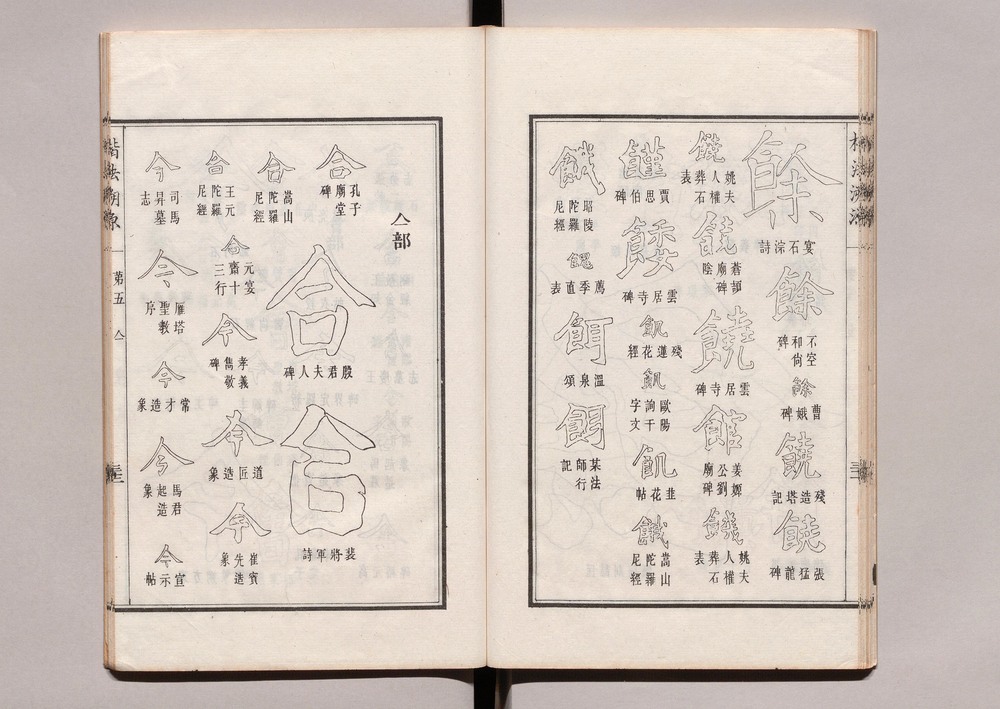 餘
宴石淙詩
餘
不空和尚碑
餘
曹娥碑
饒
殘造塔記
饒
張猛龍碑
饒
姚夫人權葬石表
饒
蒼頡廟碑陰
饒
雲居寺碑
館
姜嫄公劉廟碑
饑
姚夫人權葬石表
饉
賈思伯碑
餧
雲居寺碑
飢
殘蓮花經
飢
歐陽詢千字文
飢
韭花帖
餓
嵩山陀羅尼經
餓
昭陵陀羅尼經
餽
薦季直表
餌
溫泉頌
餌
某法師行記
亼部
合
孔子廟堂碑
合
殷君夫人碑
合
裴將軍詩
合
嵩山陀羅尼經
合
王元陀羅尼經
合
元宴齋三十行
今
孝義雋敬碑
今
道匠造象
今
崔賓先造象
今
司馬昇墓志
今
雁塔聖教序
今
常才造象
今
馬君起造象
今
宣示帖
楷法溯源
第五
亼